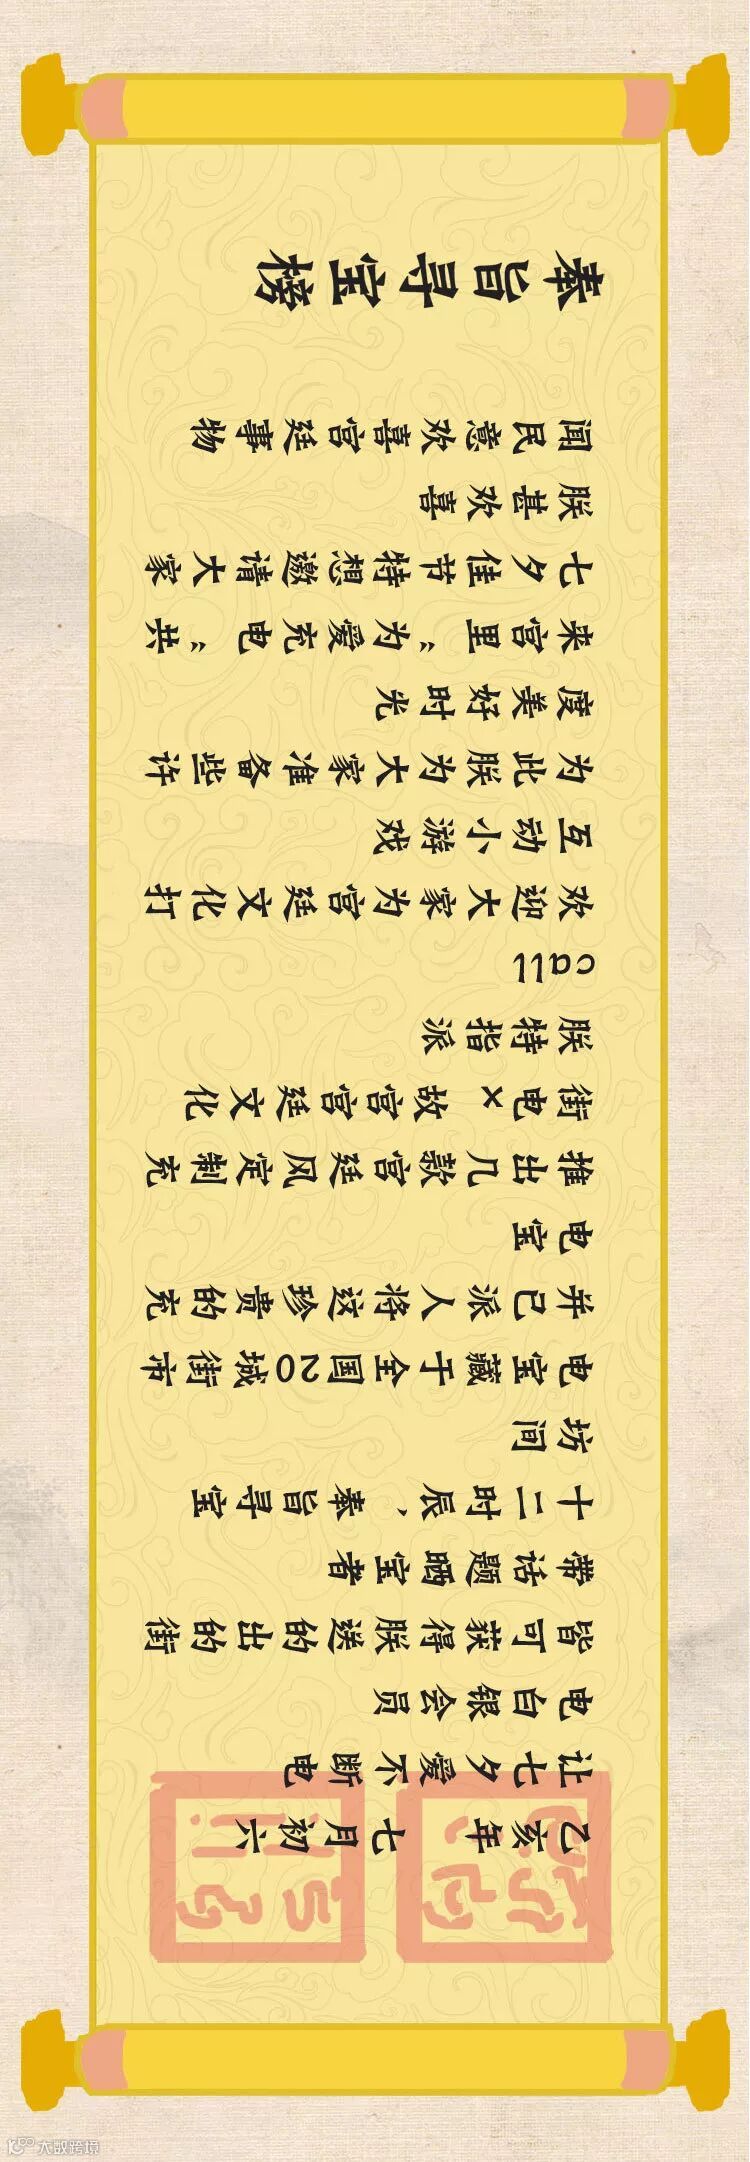 奉旨寻宝榜
闻民意欢喜宫廷事物
朕甚欢喜
七夕佳节特想邀请大家
来宫里“为爱充电“共
度美好时光
为此朕为大家准备些许
互动小游戏
欢迎大家为宫廷文化打
call
朕特指派
街电× 故宫宫廷文化
推出几款宫廷风定制充
电宝
并已派人将这珍贵的充
电宝藏于全国20城街市
坊间
十二时辰、奉旨寻宝
带话题晒宝者
皆可获得朕送的出的街
电白银会员
让七夕爱不断电
乙亥年 七月初六
大数跨境